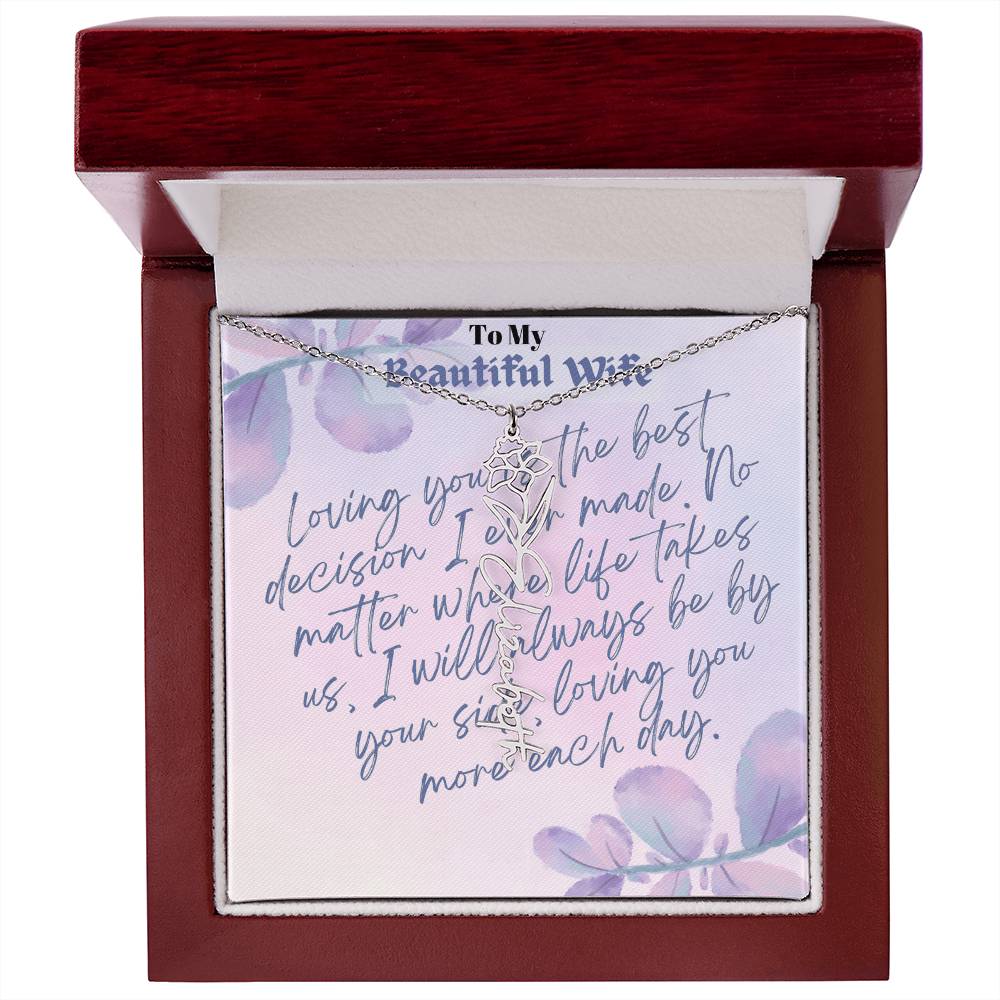 To My
Beautiful Wife
Loving you is the best
decision I ever made. No
matter where life takes
us, I will always be by
your side, loving you
more each day.
Elizabeth